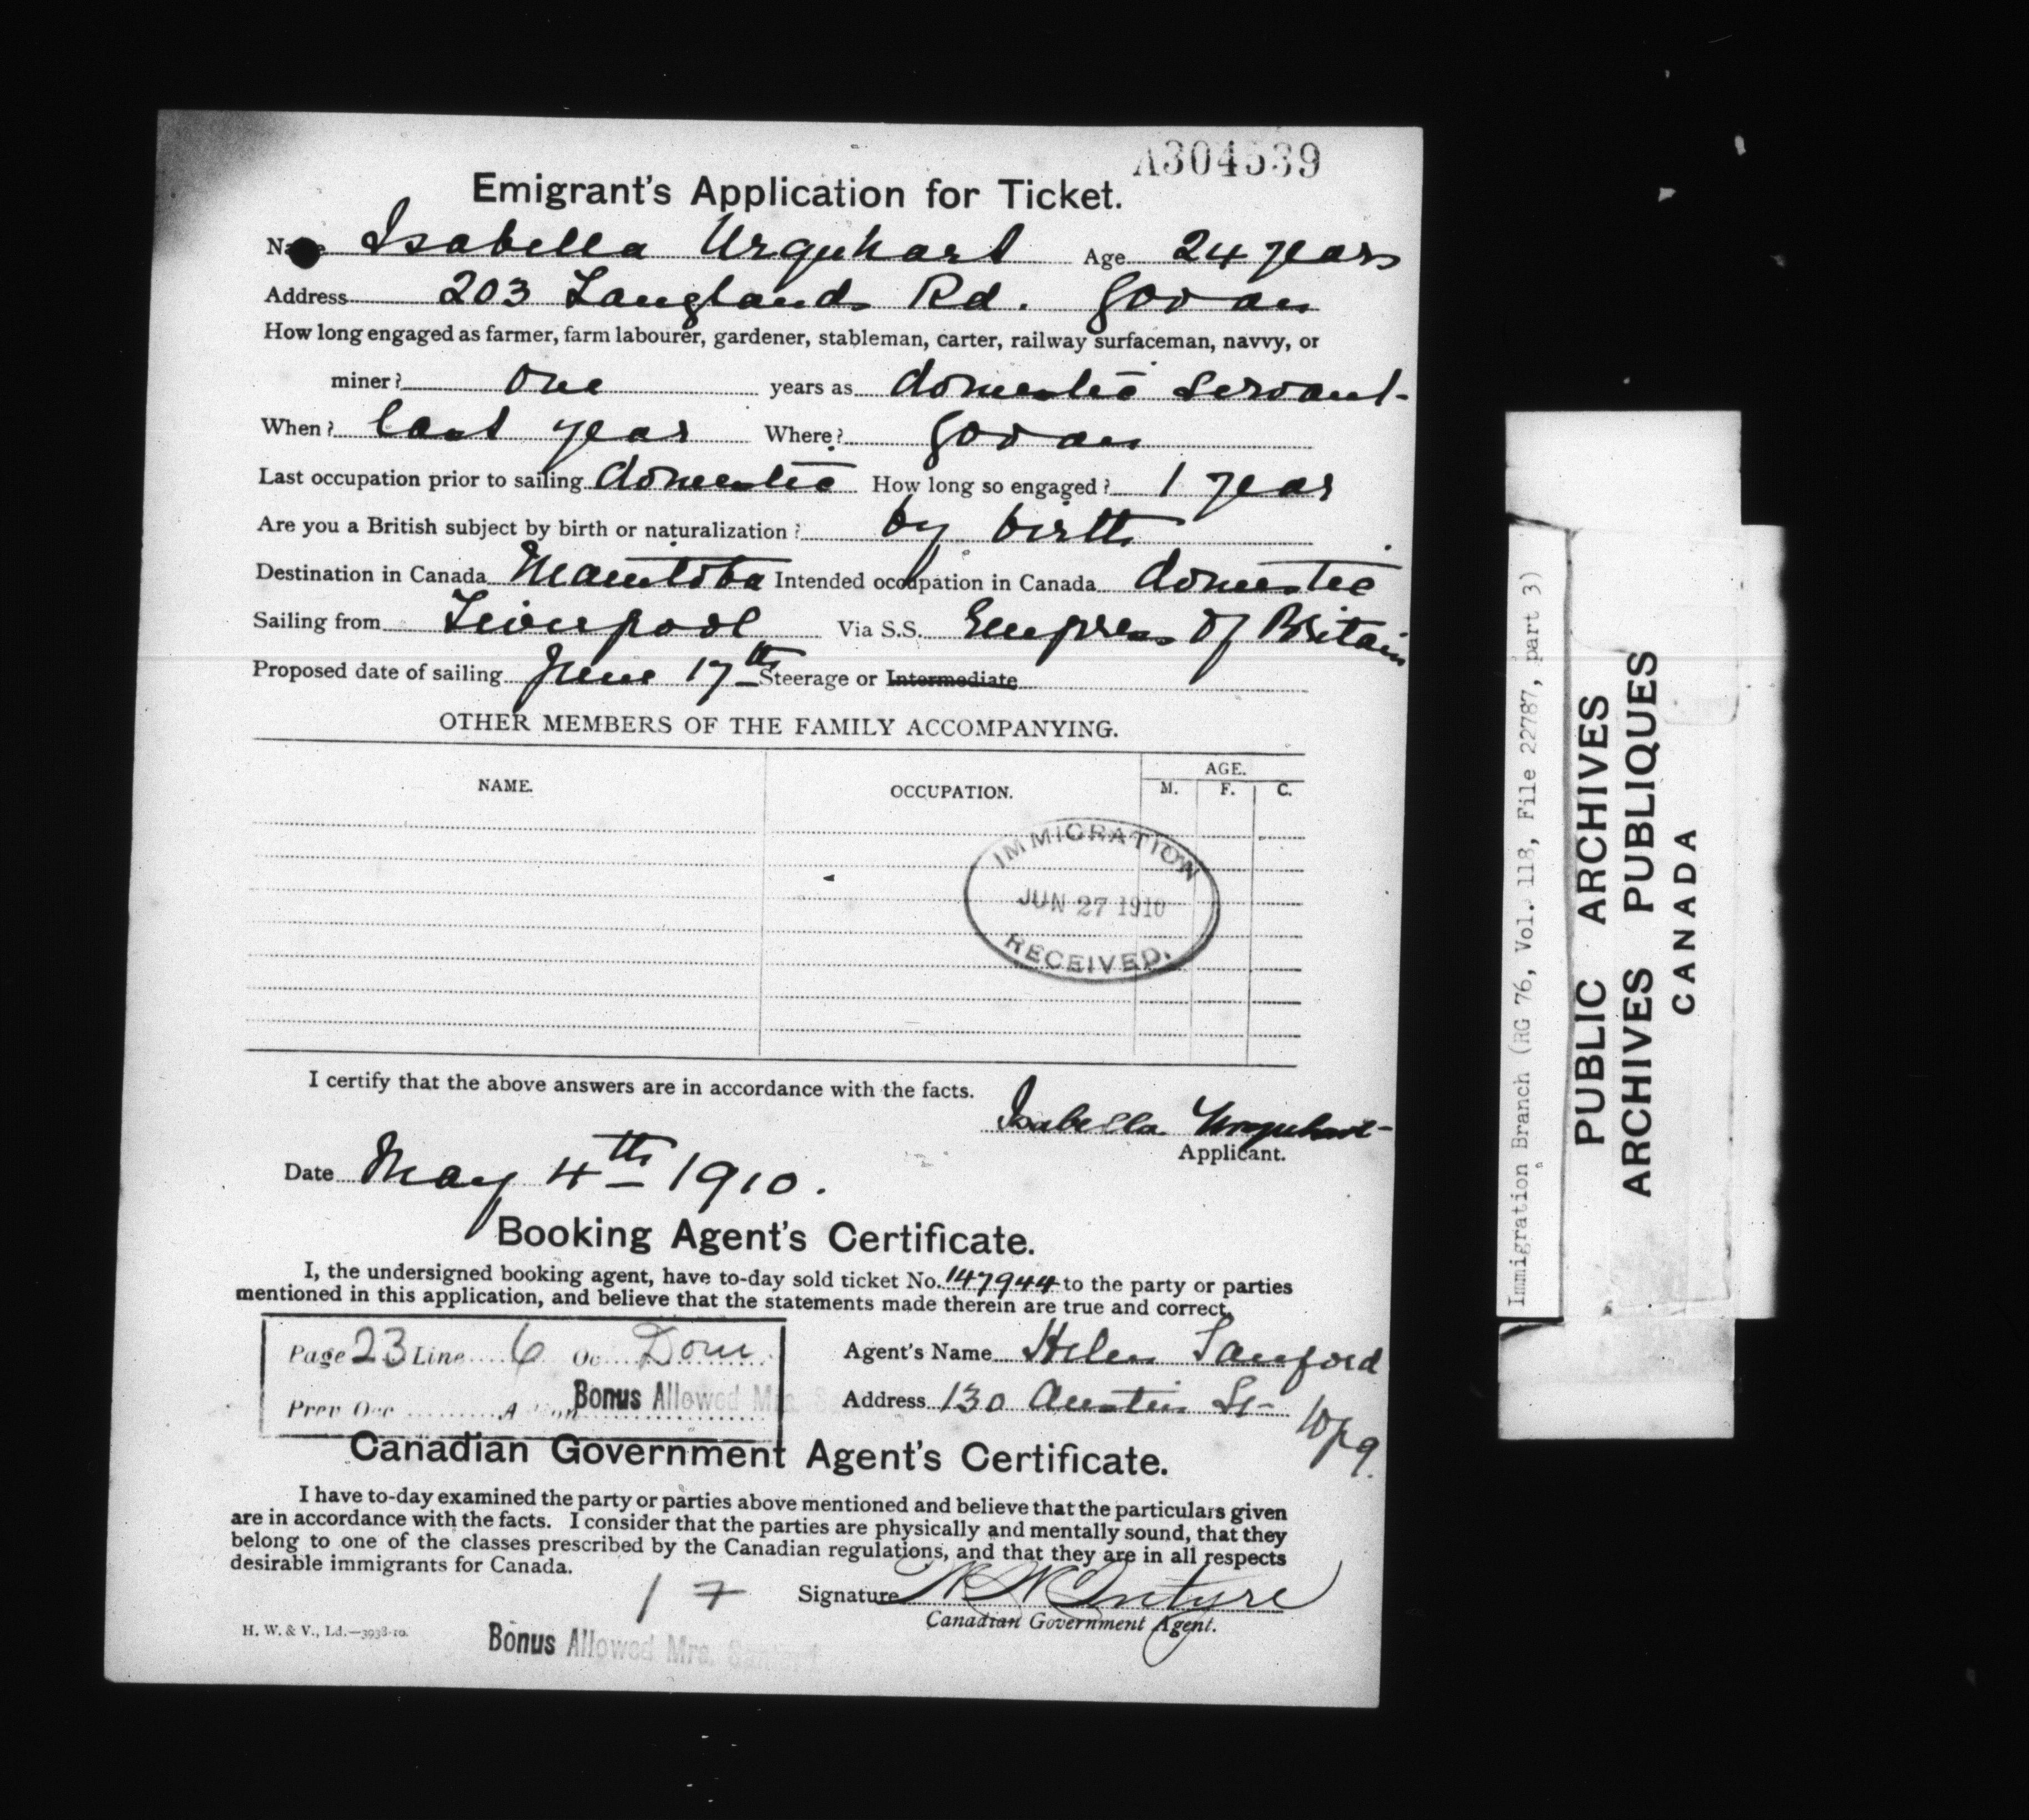 A304539
Emigrant's Application for Ticket.
Name Isabella Urquhart Age 24 years
Address 203 Langlands Rd. Govan
How long engaged as farmer, farm labourer, gardener, stableman, carter, railway surfaceman, navvy, or
miner? one years as domestic servant
When? last year Where? Govan
Last occupation prior to sailing domestic How long so engaged? 1 year
Are you a British subject by birth or naturalization? by birth
Destination in Canada Manitoba Intended occupation in Canada domestic
Sailing from Liverpool Via S.S. Empress of Britain
Proposed date of sailing June 17th Steerage or Intermediate
OTHER MEMBERS OF THE FAMILY ACCOMPANYING.
NAME. OCCUPATION. AGE.
M. F. C.
IMMIGRATION
JUN 27 1910
RECEIVED.
I certify that the above answers are in accordance with the facts.
Isabella Urquhart
Applicant.
Date May 4th 1910.
Booking Agent's Certificate.
I, the undersigned booking agent, have to-day sold ticket No. 147944 to the party or parties
mentioned in this application, and believe that the statements made therein are true and correct.
Page 23 Line 6 Oc Dom
Agent's Name Helen Sanford
Prev Occ Bonus Allowed Mrs.
Address 130 Austin St- Wpg.
Canadian Government Agent's Certificate.
I have to-day examined the party or parties above mentioned and believe that the particulars given
are in accordance with the facts. I consider that the parties are physically and mentally sound, that they
belong to one of the classes prescribed by the Canadian regulations, and that they are in all respects
desirable immigrants for Canada.
17
Signature W McIntyre
Canadian Government Agent.
H. W. & V., Ld.—3938-10.
Bonus Allowed Mrs. Sanford
Immigration Branch (RG 76, Vol. 118, File 22787, part 3)
PUBLIC ARCHIVES
ARCHIVES PUBLIQUES
CANADA